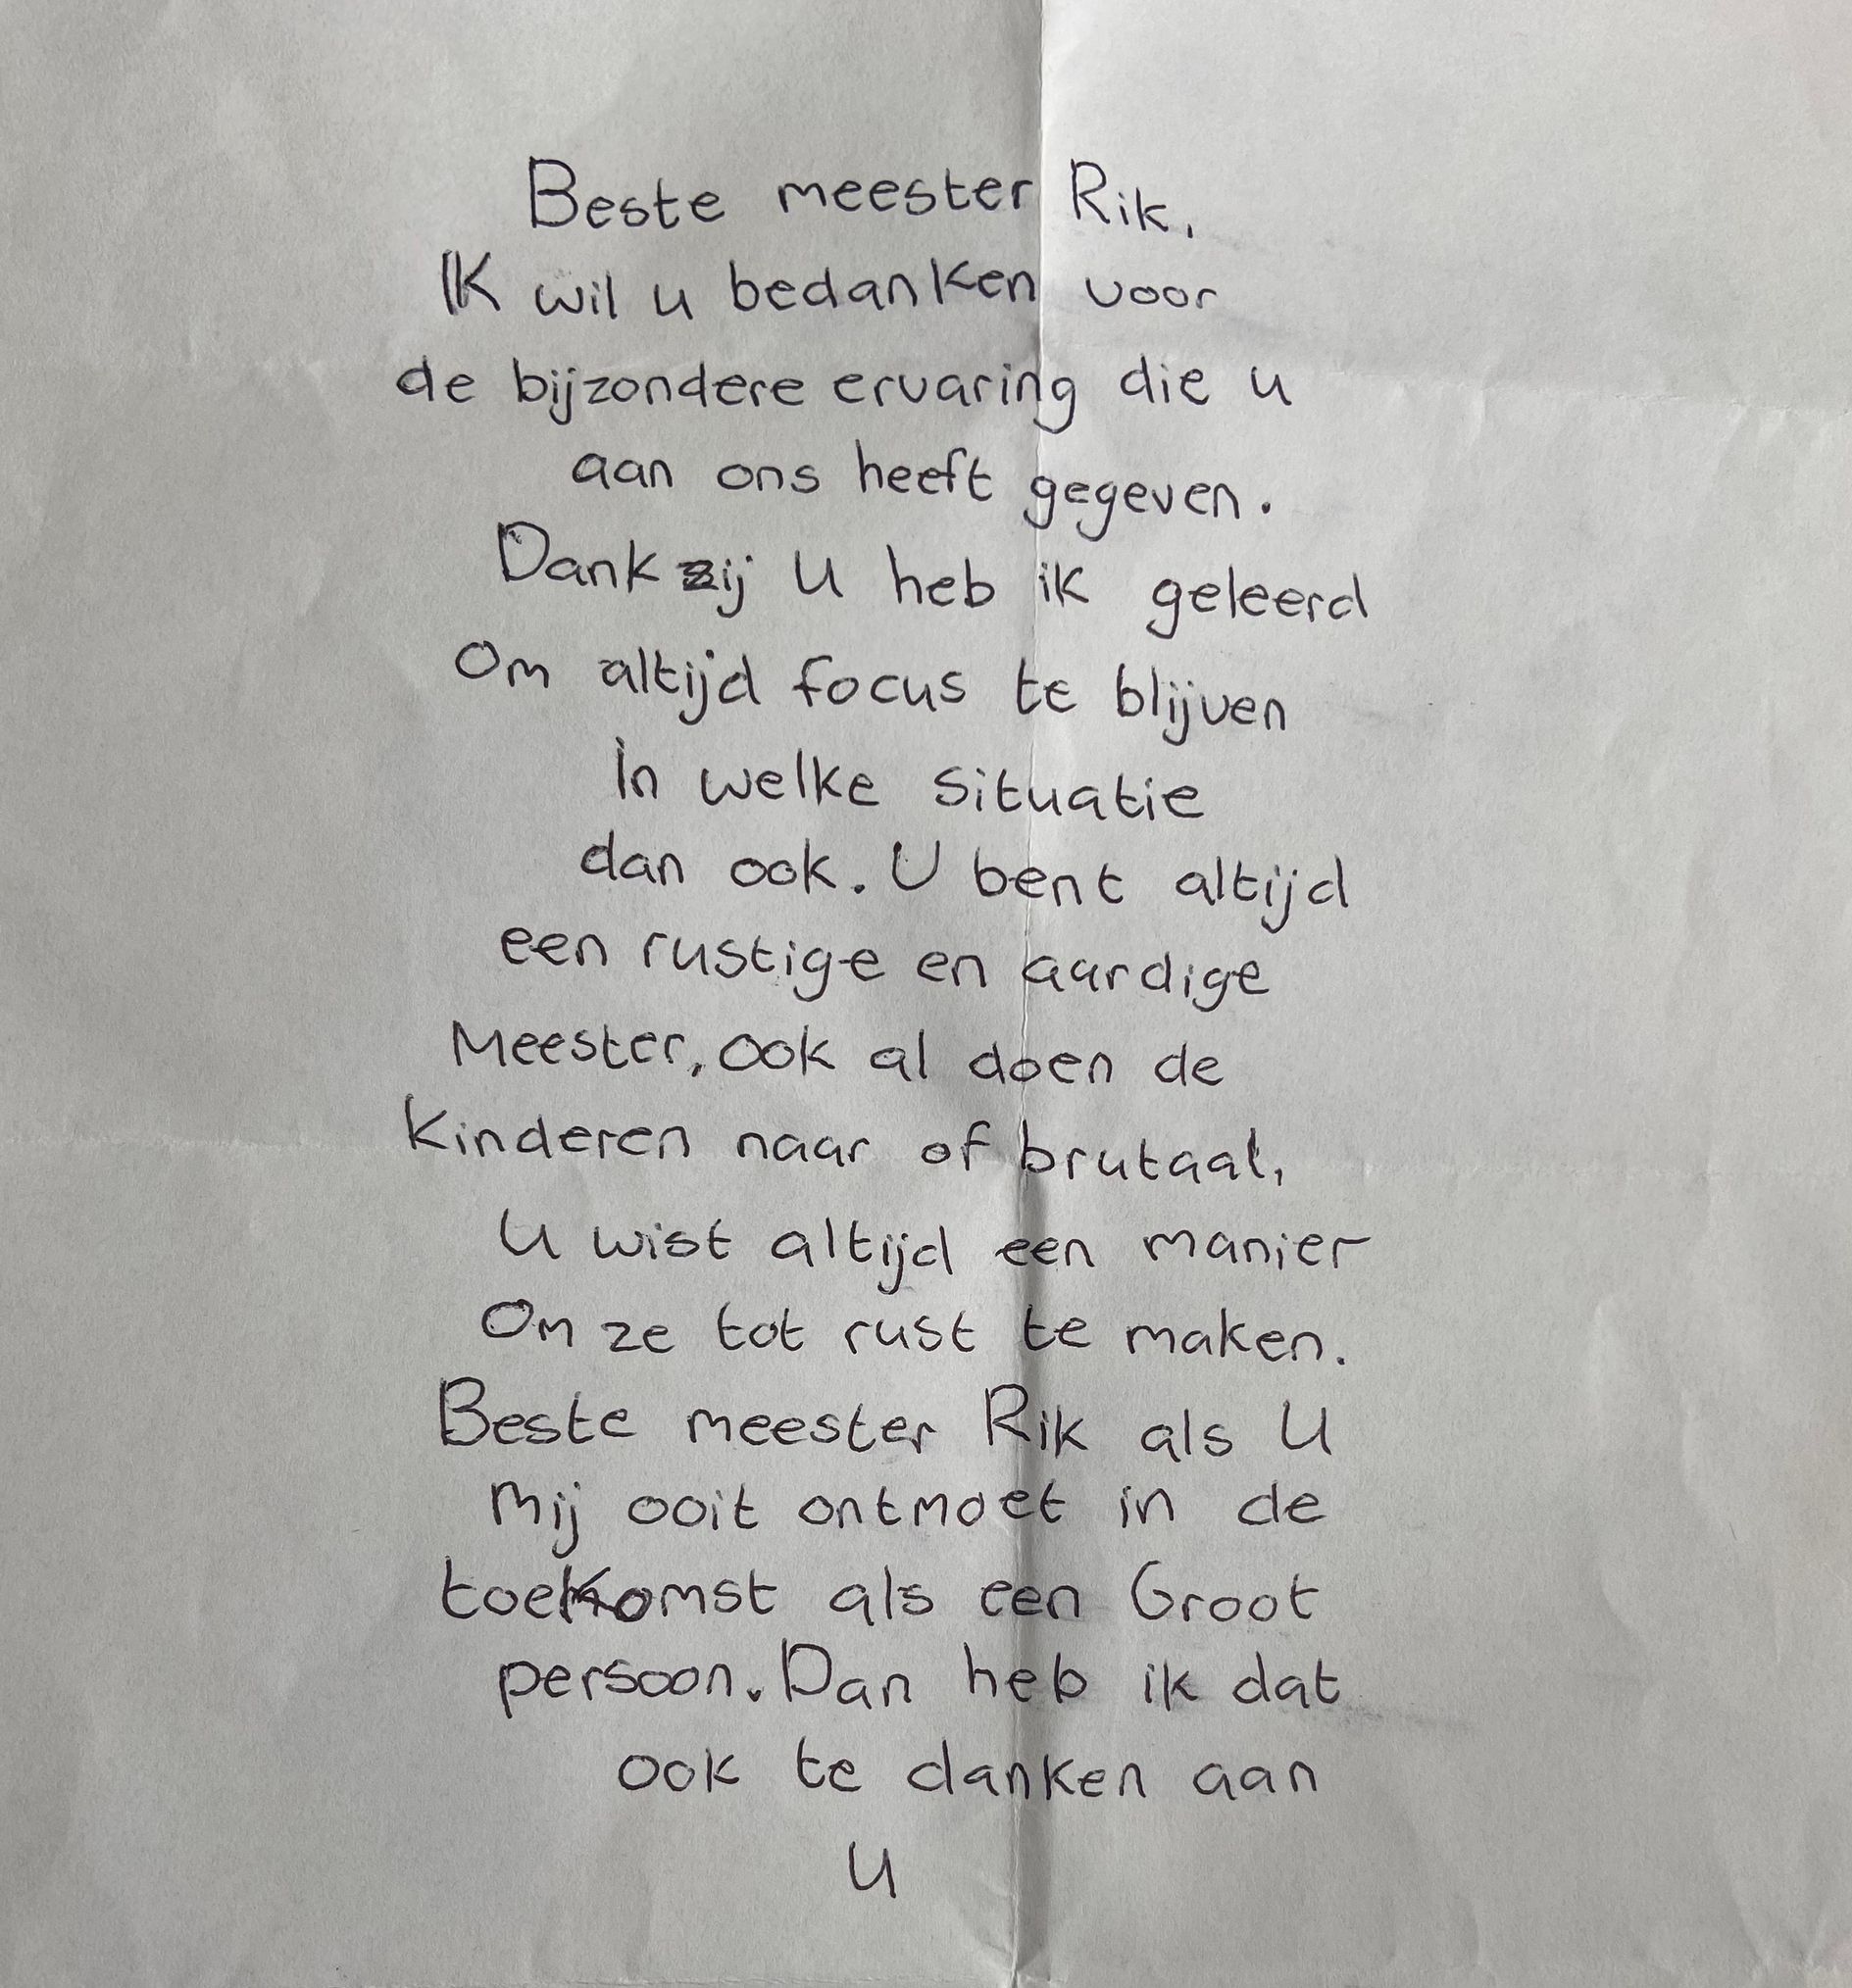 Beste meester Rik,
IK wil u bedanken voor
de bijzondere ervaring die u
aan ons heeft gegeven.
Dank zij U heb ik geleerd
Om altijd focus te blijven
in welke situatie
dan ook. U bent altijd
een rustige en aardige
Meester, ook al doen de
Kinderen naar of brutaal,
U wist altijd een manier
Om ze tot rust te maken.
Beste meester Rik als U
mij ooit ontmoet in de
toekomst als een Groot
persoon. Dan heb ik dat
ook te danken aan
U